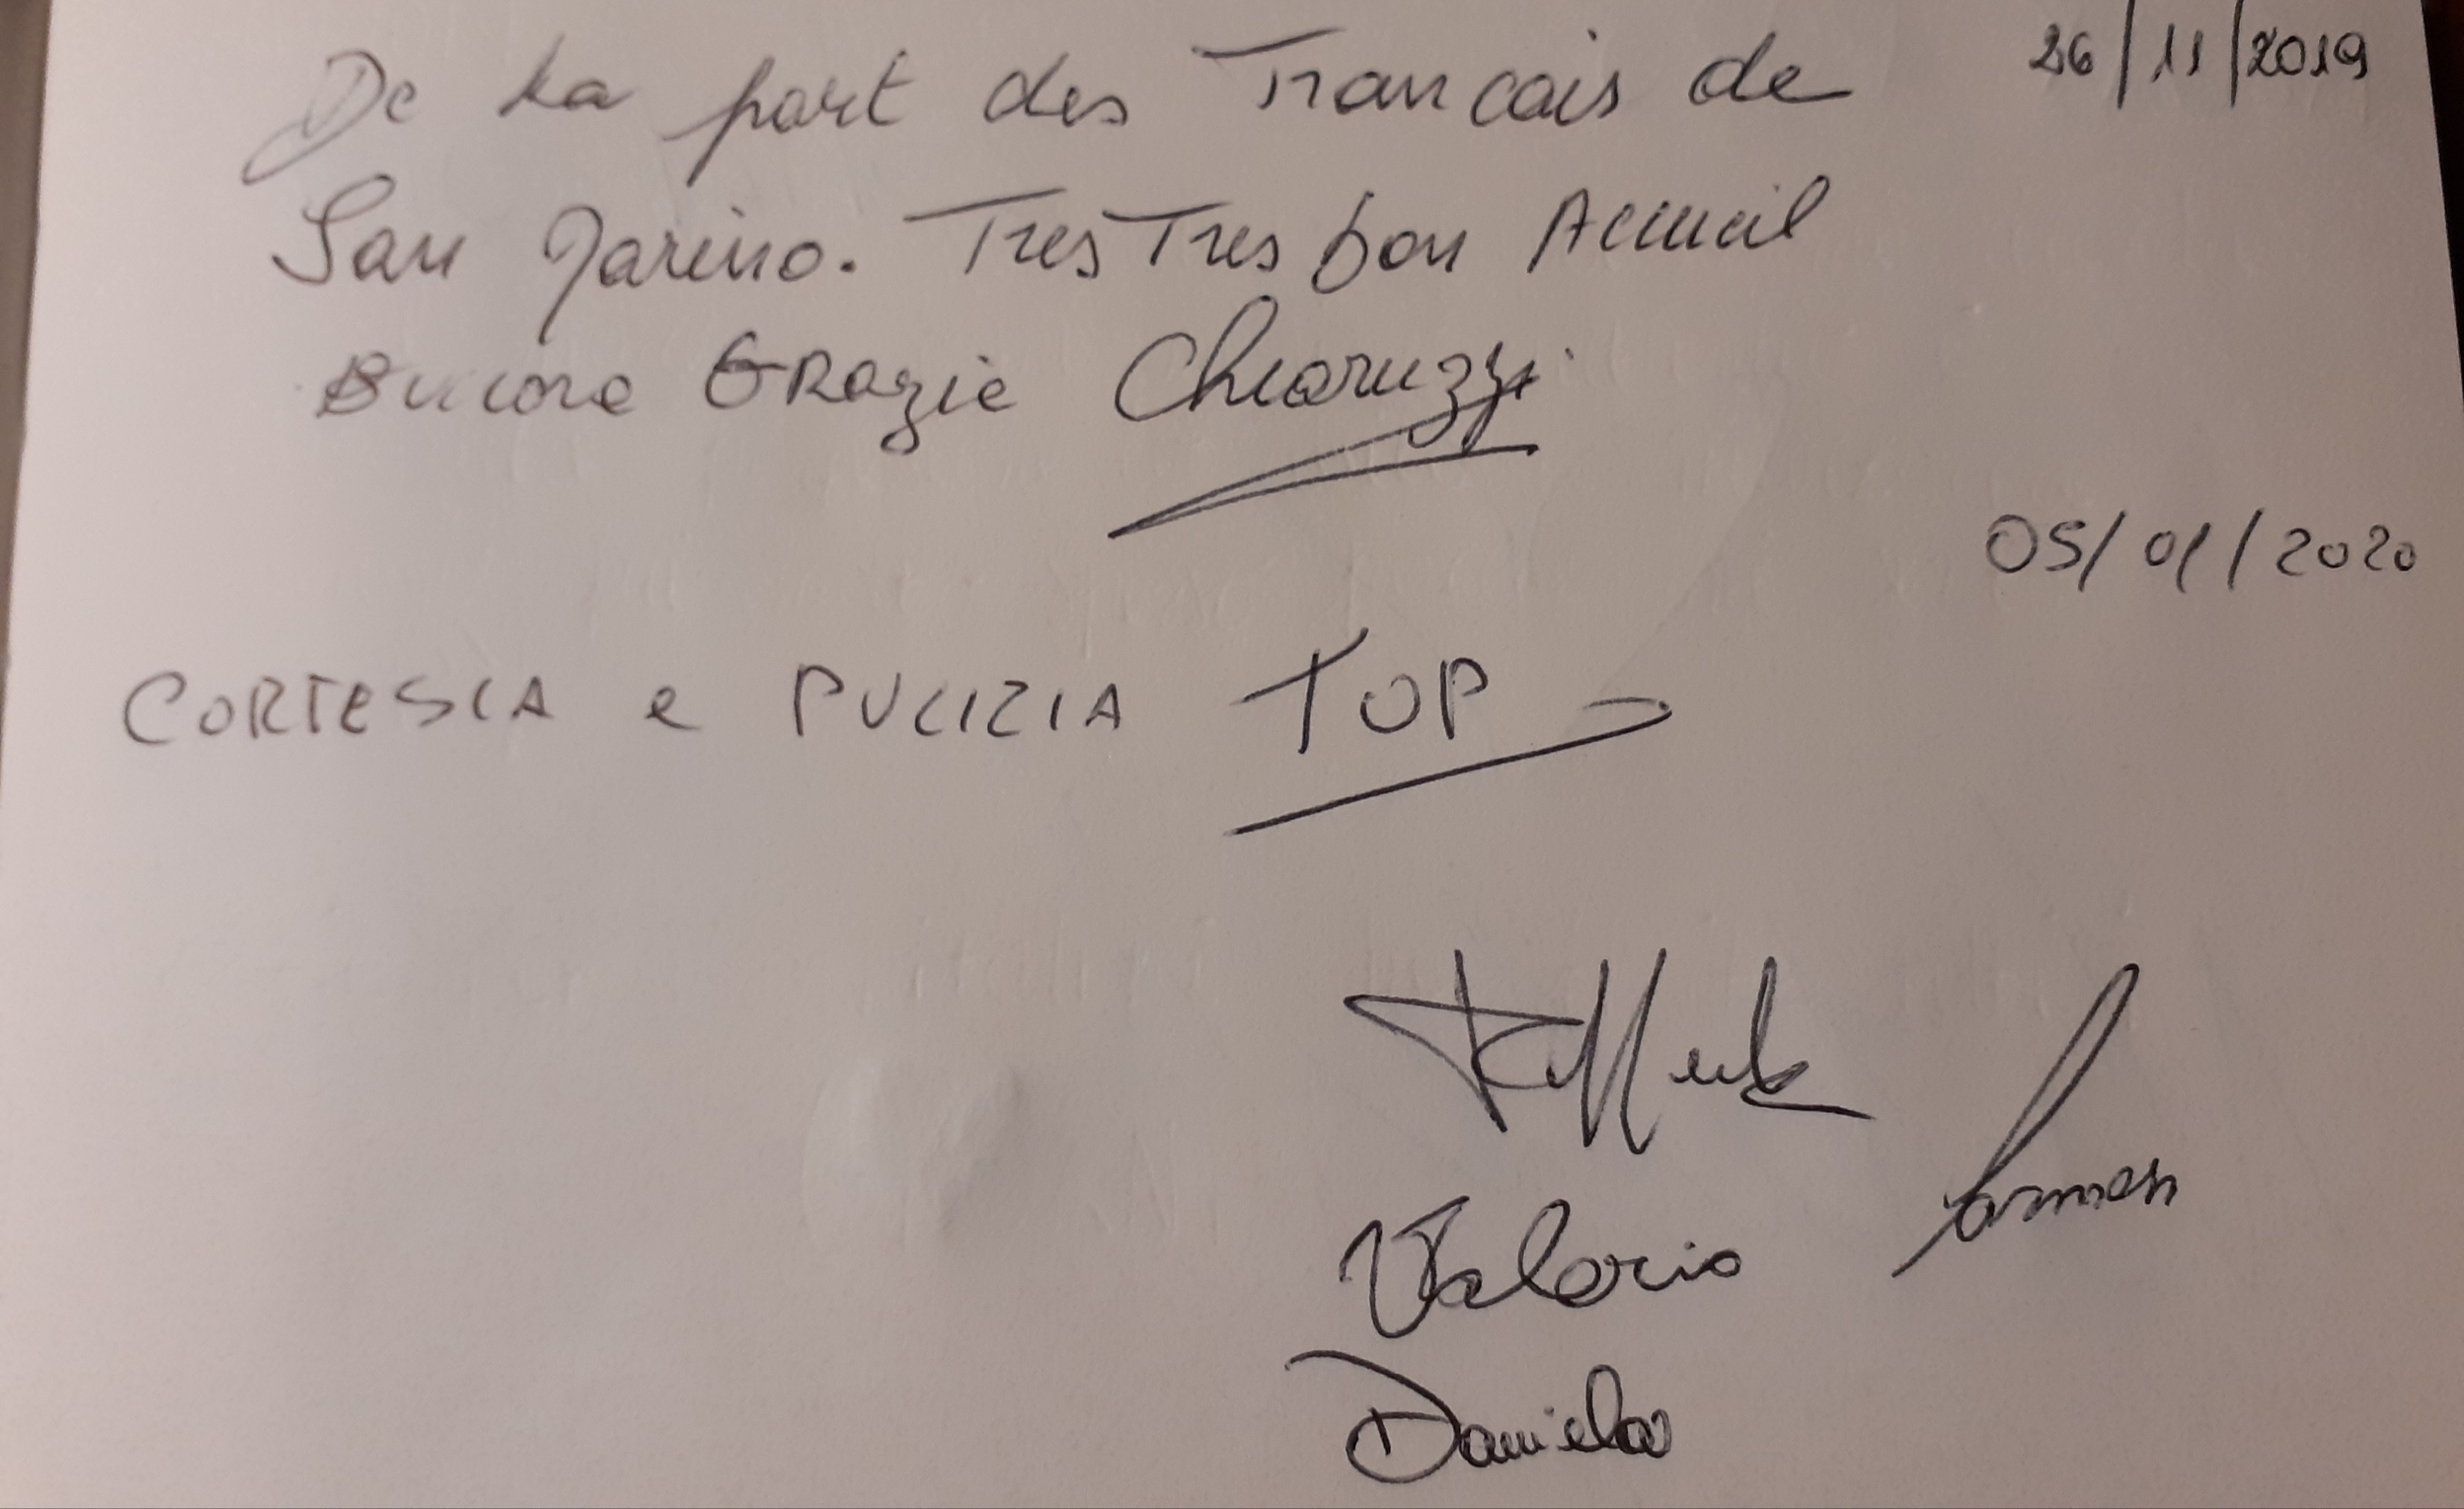 De La part des Francais de 26/11/2019
San Marino. Tres Tres bon Accueil
Buone Grazie Chiaruzzi
05/01/2020
CORTESIA e PULIZIA TOP
Carmen
Valerio
Daniela